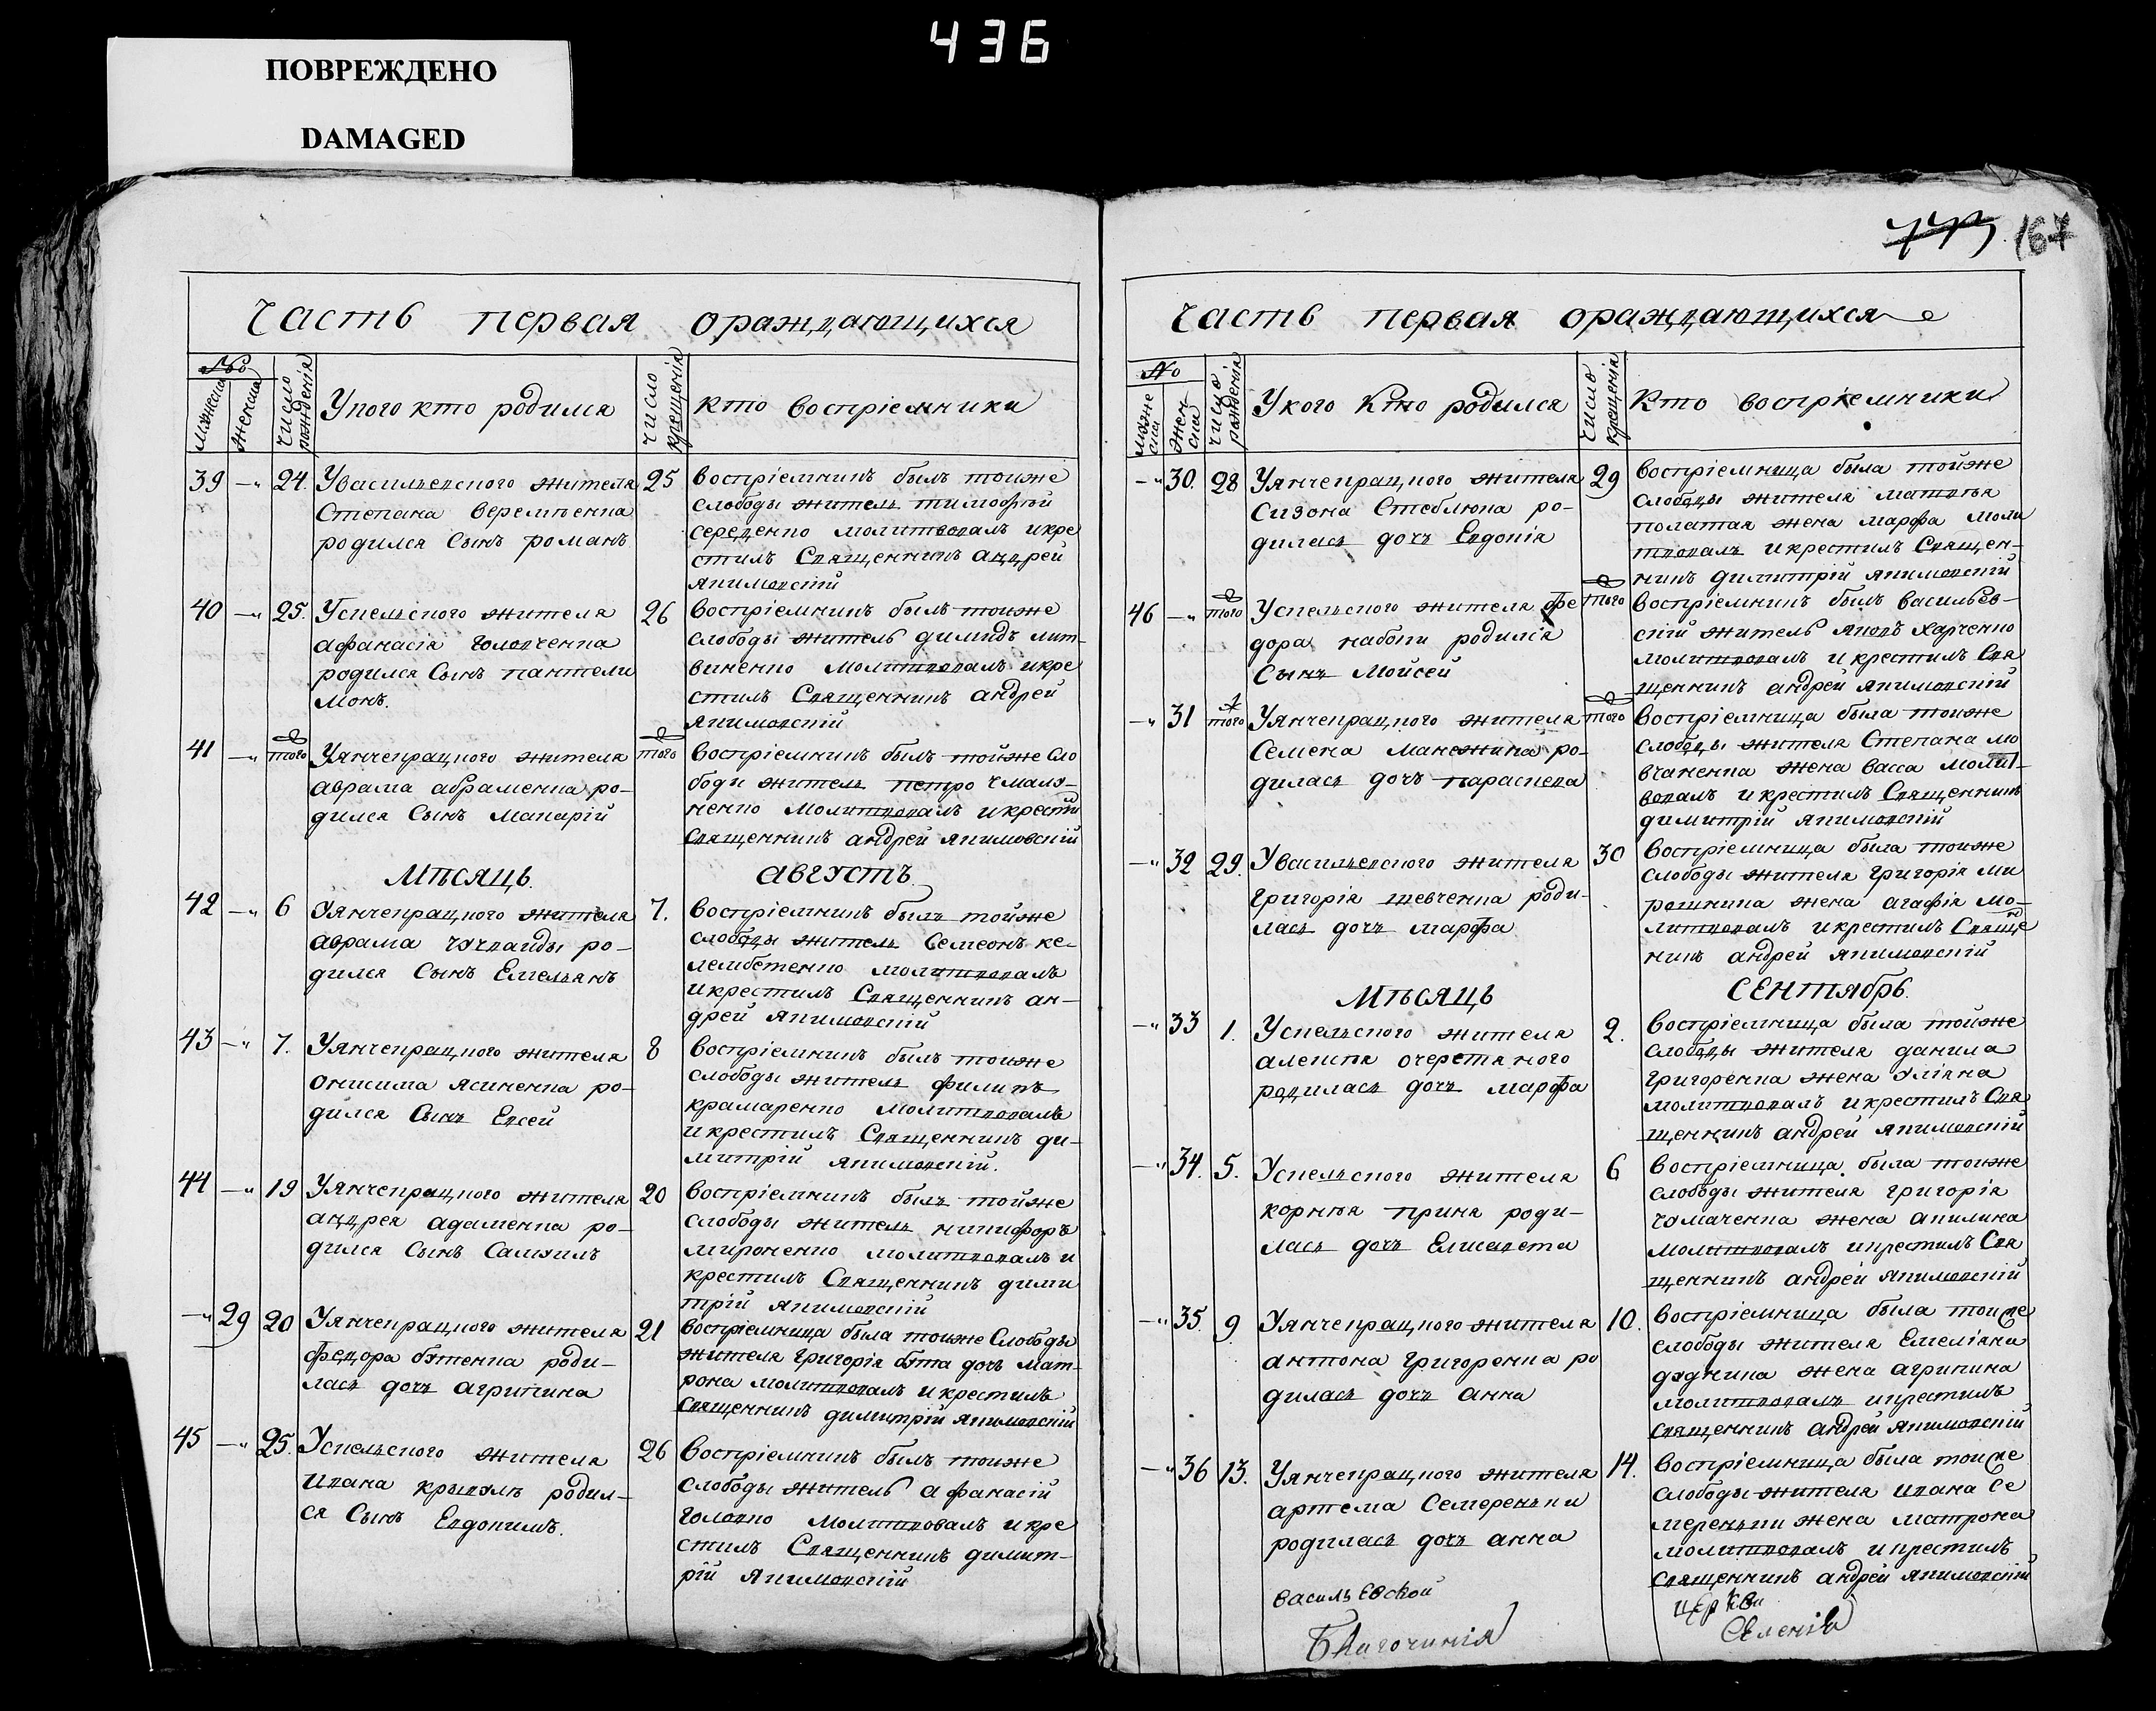 436
ПОВРЕЖДЕНО
DAMAGED
167
Часть первая ораждающихся
№
мужеска
женска
число рожденія
У кого кто родился
число крещенія
кто воспріемники
39 —„ 24. У васильевского жителя
Степана Веремѣенка
родился Сынъ романъ
25 воспріемникъ былъ тоиже
слободы житель тимофѣй
середенко молитвовалъ икре
стилъ Священникъ андрей
якимовскій
40 —„ 25. Успельсного жителя
афанасія Головченка
родился Сынъ пантели
монъ.
26 воспріемникъ былъ тоиже
слободы житель димидъ лит-
виненко молитвовалъ икре
стилъ Священникъ андрей
якимовскій
41 —„ того Уянчекрацкого жителя
аврама абраменка ро-
дился Сынъ Макарій
того воспріемникъ былъ тойже Сло
боды житель петро
ненко молитвовалъ икрести
Священникъ андрей якимовскій
Мѣсяцъ. августъ
42 —„ 6 Уянчекрацкого жителя
аврама ро-
дился Сынъ Емельянъ
7. воспріемникъ былъ тойже
слободы житель Семеонъ ке-
лембетенко молитвовалъ
икрестилъ Священникъ ан-
дрей якимовскій
43 —„ 7. Уянчекрацкого жителя
онисима ясиненка ро-
дился Сынъ Евсей
8 воспріемникъ былъ тоиже
слободы житель филипъ
крамаренко молитвовалъ
икрестилъ Священникъ ди-
митрій якимовскій.
44 —„ 19 Уянчекрацкого жителя
андрея адаменка ро-
дился Сынъ Самуилъ
20 воспріемникъ былъ тойже
слободы житель никифоръ
мироненко молитвовалъ и
крестилъ Священникъ дими
трій якимовскій
—„ 29 20 Уянчекрацкого жителя
федора бутенка роди-
лась дочь агрипина
21 воспріемница была тоиже Слободы
жителя Григорія бута дочь мат-
рона молитвовалъ икрестилъ
Священникъ димитрій якимовскій
45 —„ 25. Успельсного жителя
ивана родил-
ся Сынъ Евдокимъ.
26 воспріемникъ былъ тоиже
слободы житель афанасій
Головко молитвовалъ икре
стилъ Священникъ димит-
рій якимовскій
Часть первая ораждающихся
№
муже ска
жен ска
число рожденія
У кого Кто родился
число крещенія
Кто воспріемники
—„ 30. 28 Уянчекрацкого жителя
Сизона Стеблюка ро-
дилась дочь Евдокія
29 воспріемница была тойже
слободы жителя матвѣя
полатая жена марфа моли
твовалъ икрестилъ Священ-
никъ димитрій якимовскій
46 —„ того Успельсного жителя фе
дора кабоки родился
Сынъ Мойсей
того воспріемникъ былъ васильев-
скій житель яковъ харченко
молитвовалъ и крестилъ Свя
щенникъ андрей якимовскій
—„ 31 того Уянчекрацкого жителя
Семена Манежина ро-
дилась дочь параскева
того воспріемница была тоиже
слободы жителя Степана мо
вчаненка жена васса молит-
вовалъ и крестилъ Священникъ
димитрій якимовскій
—„ 32 29. У васильевского жителя
Григорія шевченка роди-
лась дочь марфа
30 воспріемница была тоиже
слободы жителя Григорія ми
рошника жена агафія мо-
литвовалъ икрестилъ Свяще
никъ андрей якимовскій
Мѣсяцъ Сентябрь.
—„ 33 1. Успельсного жителя
алексѣя очеретяного
родилась дочь марфа
2. воспріемница была тойже
слободы жителя данила
григоренка жена уліяна
молитвовалъ икрестилъ Свя
щенникъ андрей якимовскій
—„ 34. 5. Успельсного жителя
корнѣя роди-
лась дочь Елисавета
6 воспріемница была тоиже
слободы жителя григорія
чумаченка жена акилина
молитвовалъ икрестилъ Свя
щенникъ андрей якимовскій
—„ 35. 9 Уянчекрацкого жителя
антона григоренка ро
дилась дочь анна
10. воспріемница была тоиже
слободы жителя Емеліяна
дудника жена агрипина
молитвовалъ икрестилъ
Священникъ андрей якимовскій
—„ 36 13. Уянчекрацкого жителя
артема Семереньки
родилась дочь анна
14. воспріемница была тоиже
слободы жителя ивана Се
мереньки жена матрона
молитвовалъ икрестилъ
Священникъ андрей якимовскій
васильевской церкви